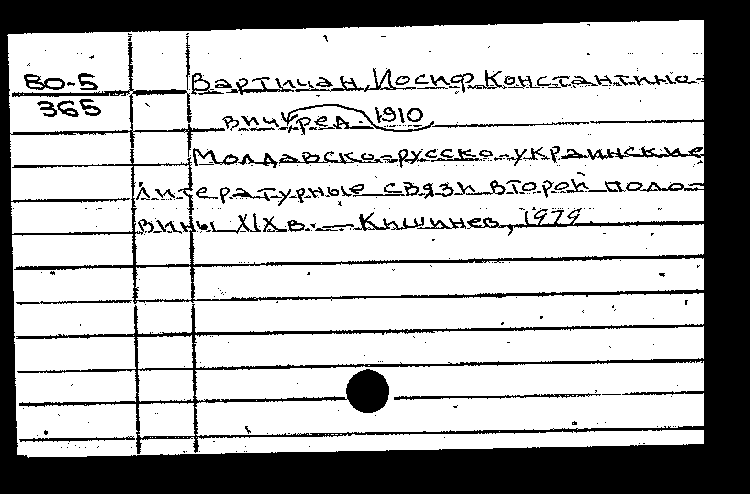 ВО-5
365
Вартичан, Иосиф Константино-
вич, ред. 1910
Молдавско-русско-украинские
литературные связи второй поло-
вины XIX в. — Кишинев, 1979.